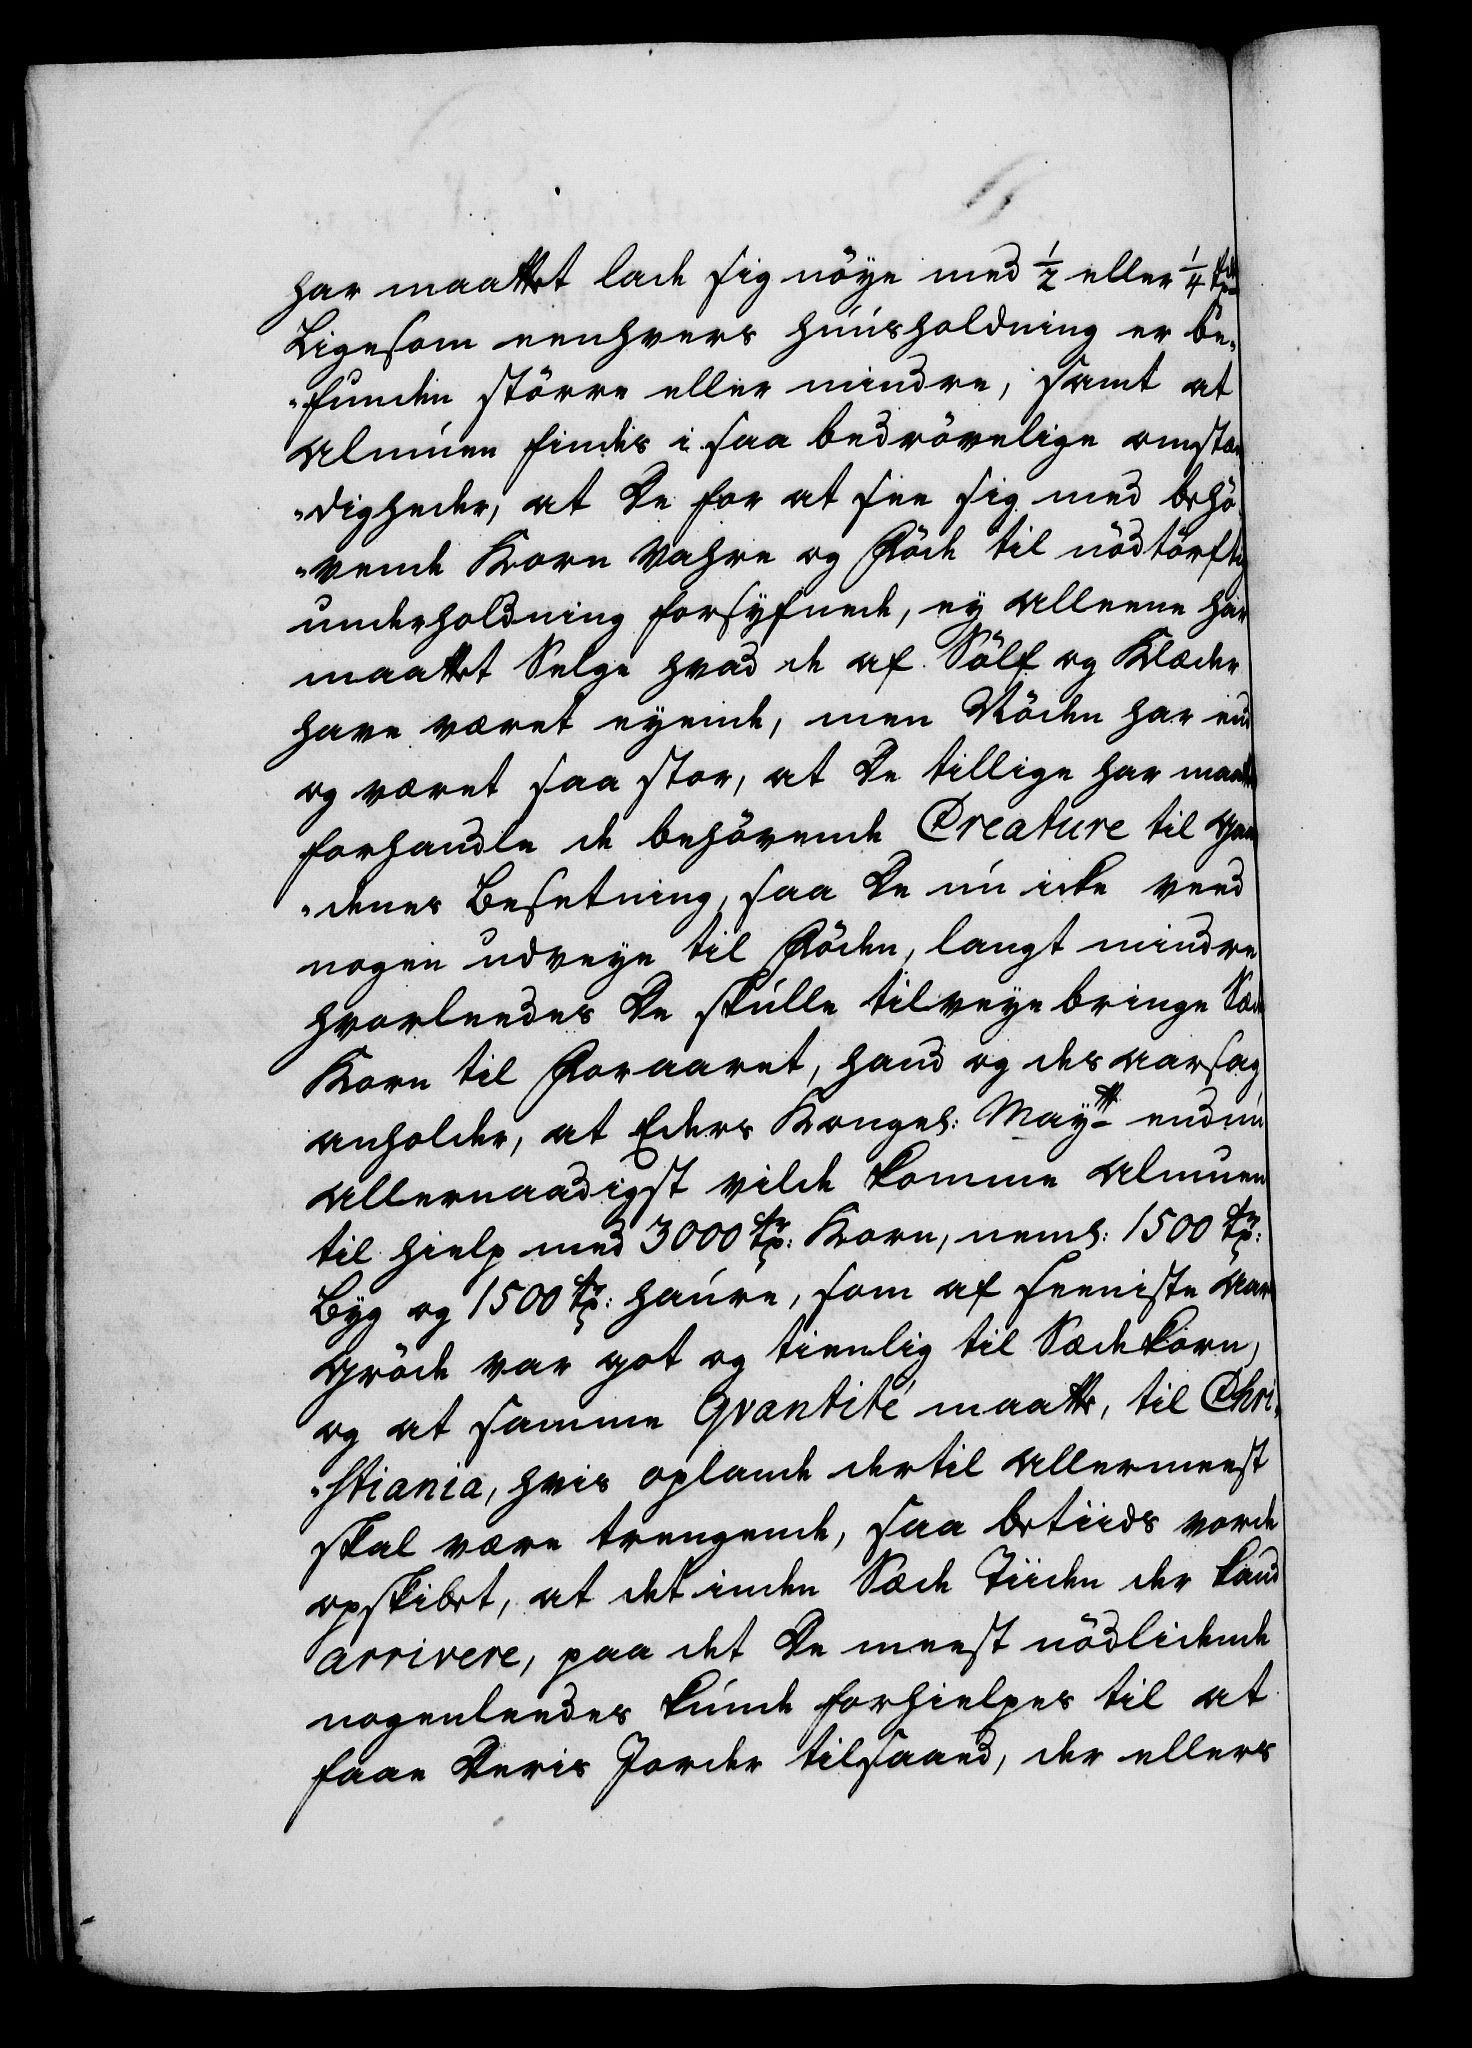 har maattet lade sig nöye med 1/2 eller 1/4 tde
Ligesom eenhvers huúsholdning er be„
„funden större eller mindre, samt at
Almúen findes i saa bedrövelige omstæn
„digheder, at De for at see sig med behö„
„vende Korn Vahre og Föde til nödtörftig
underholdning forsÿfnede, eÿ alleene har
maattet Selge hvad de af Sölf og Klæder
have været eÿende, men Nöden har end
og været saa stor, at De tillige har maatt
forhandle de behövende Creature til Gaar
„denes Besetning, saa De nú icke veed
nogen udveye til Föden, langt mindre
hvorleedes De skúlle tilveyebringe Sæde
Korn til Foraaret, hand og des aarsag
anholder, at Eders Kongel: Maÿtt endnú
allernaadigst vilde komme Almuen
til hielp med 3000 tr: Korn, neml: 1500 tr:
Bÿg og 1500 tr: haúre, som af seeniste Aars
gröde var got og tienlig til Sædekorn,
og at samme Qvantité maatte, til Chri„
„stiania, hvis oplande dertil allermeest
skal være trengende, saa betiids vorde
opskibet, at det inden Sæde Tiiden der kand
arrivere, paa det De meest nödlidende
nogenleedes kúnde forhielpes til at
faae Deris Jorder tilsaaed, der ellers